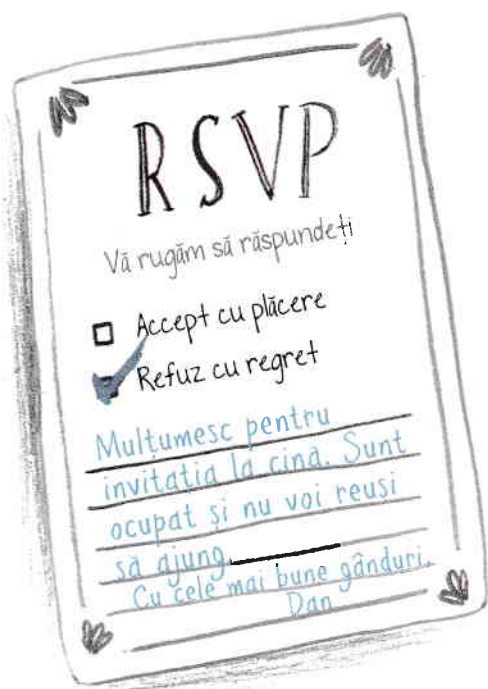 RSVP
Vă rugăm să răspundeți
Accept cu plăcere
Refuz cu regret
Mulțumesc pentru
invitația la cină. Sunt
ocupat și nu voi reuși
să ajung.
Cu cele mai bune gânduri,
Dan